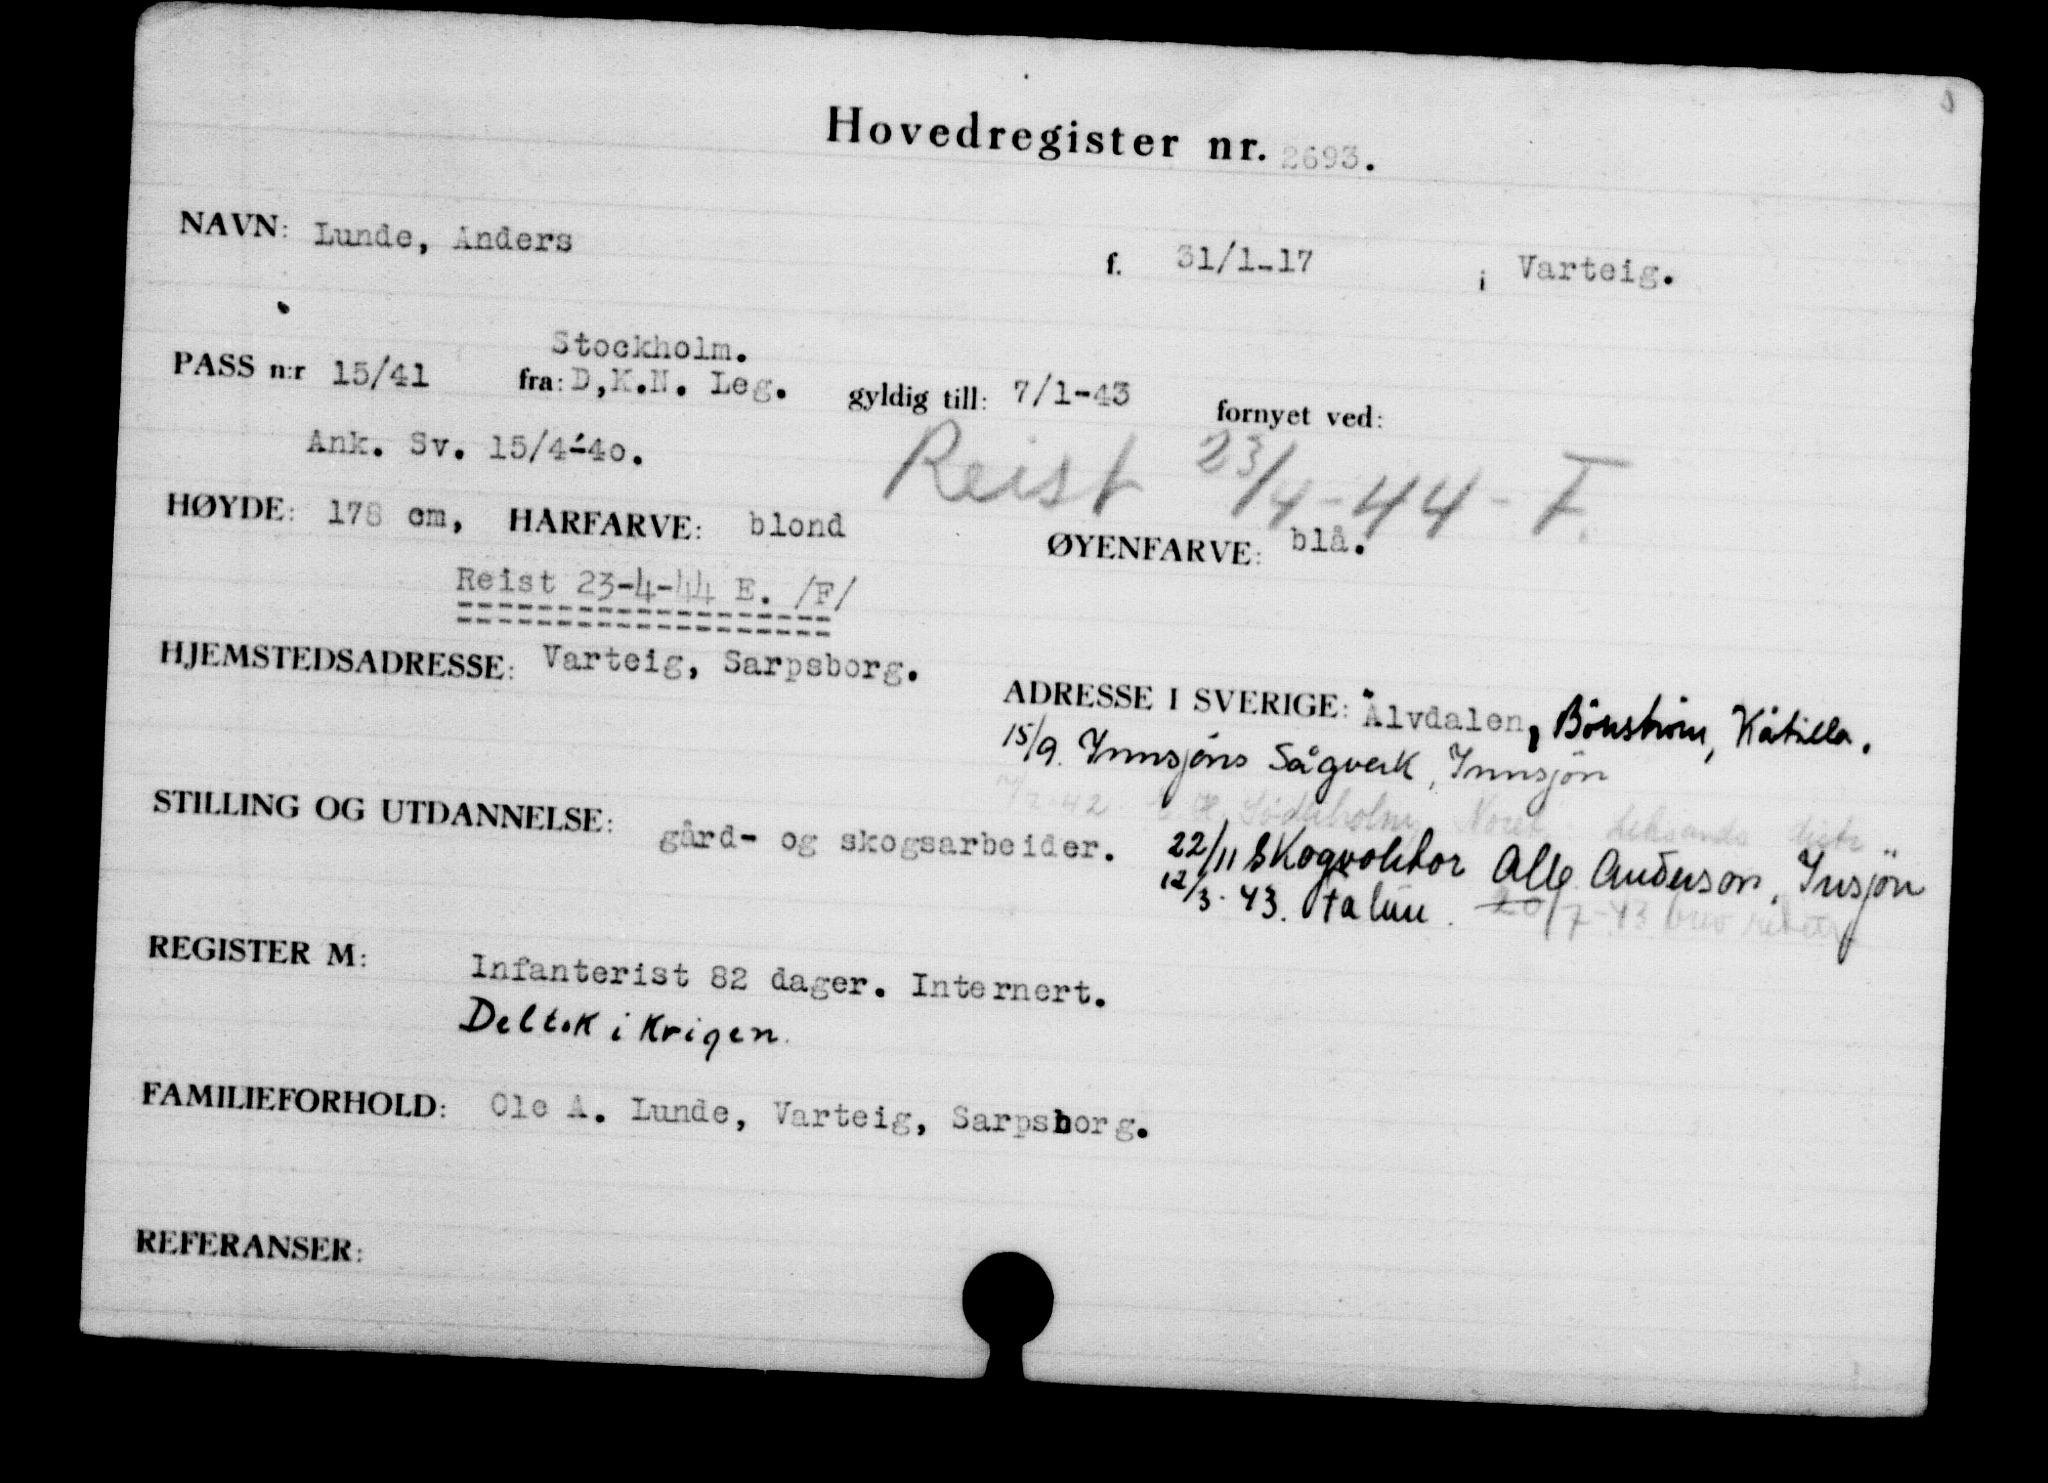 Hovedregister nr. 2693.
NAVN: Lunde, Anders f. 31/1-17 i Varteig.
Stockholm.
PASS n:r 15/41 fra: D,K.N. Leg. gyldig till: 7/1-43 fornyet ved:
Ank. Sv. 15/4-40. Reist 23/4-44 - F.
HØYDE: 178 cm, HARFARVE: blond ØYENFARVE: blå.
Reist 23-4-44 E. /F/
HJEMSTEDSADRESSE: Varteig, Sarpsborg.
ADRESSE I SVERIGE: Älvdalen,
15/9. Innsjöns Sågverk, Innsjön
STILLING OG UTDANNELSE: gård- og skogsarbeider.
22/11 Anderson, Insjön
12/3-43. Falun. 20/7-43
REGISTER M: Infanterist 82 dager. Internert.
Deltok i Krigen.
FAMILIEFORHOLD: Ole A. Lunde, Varteig, Sarpsborg.
REFERANSER: